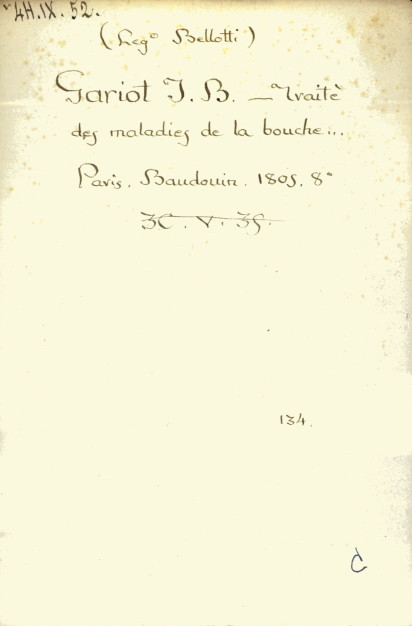 4H.IX.52.
(Leg.º Bellotti)
Gariot J. B. — Traitè
des maladies de la bouche...
Paris. Baudouin. 1805. 8º
3C. V. 35.
134.
C